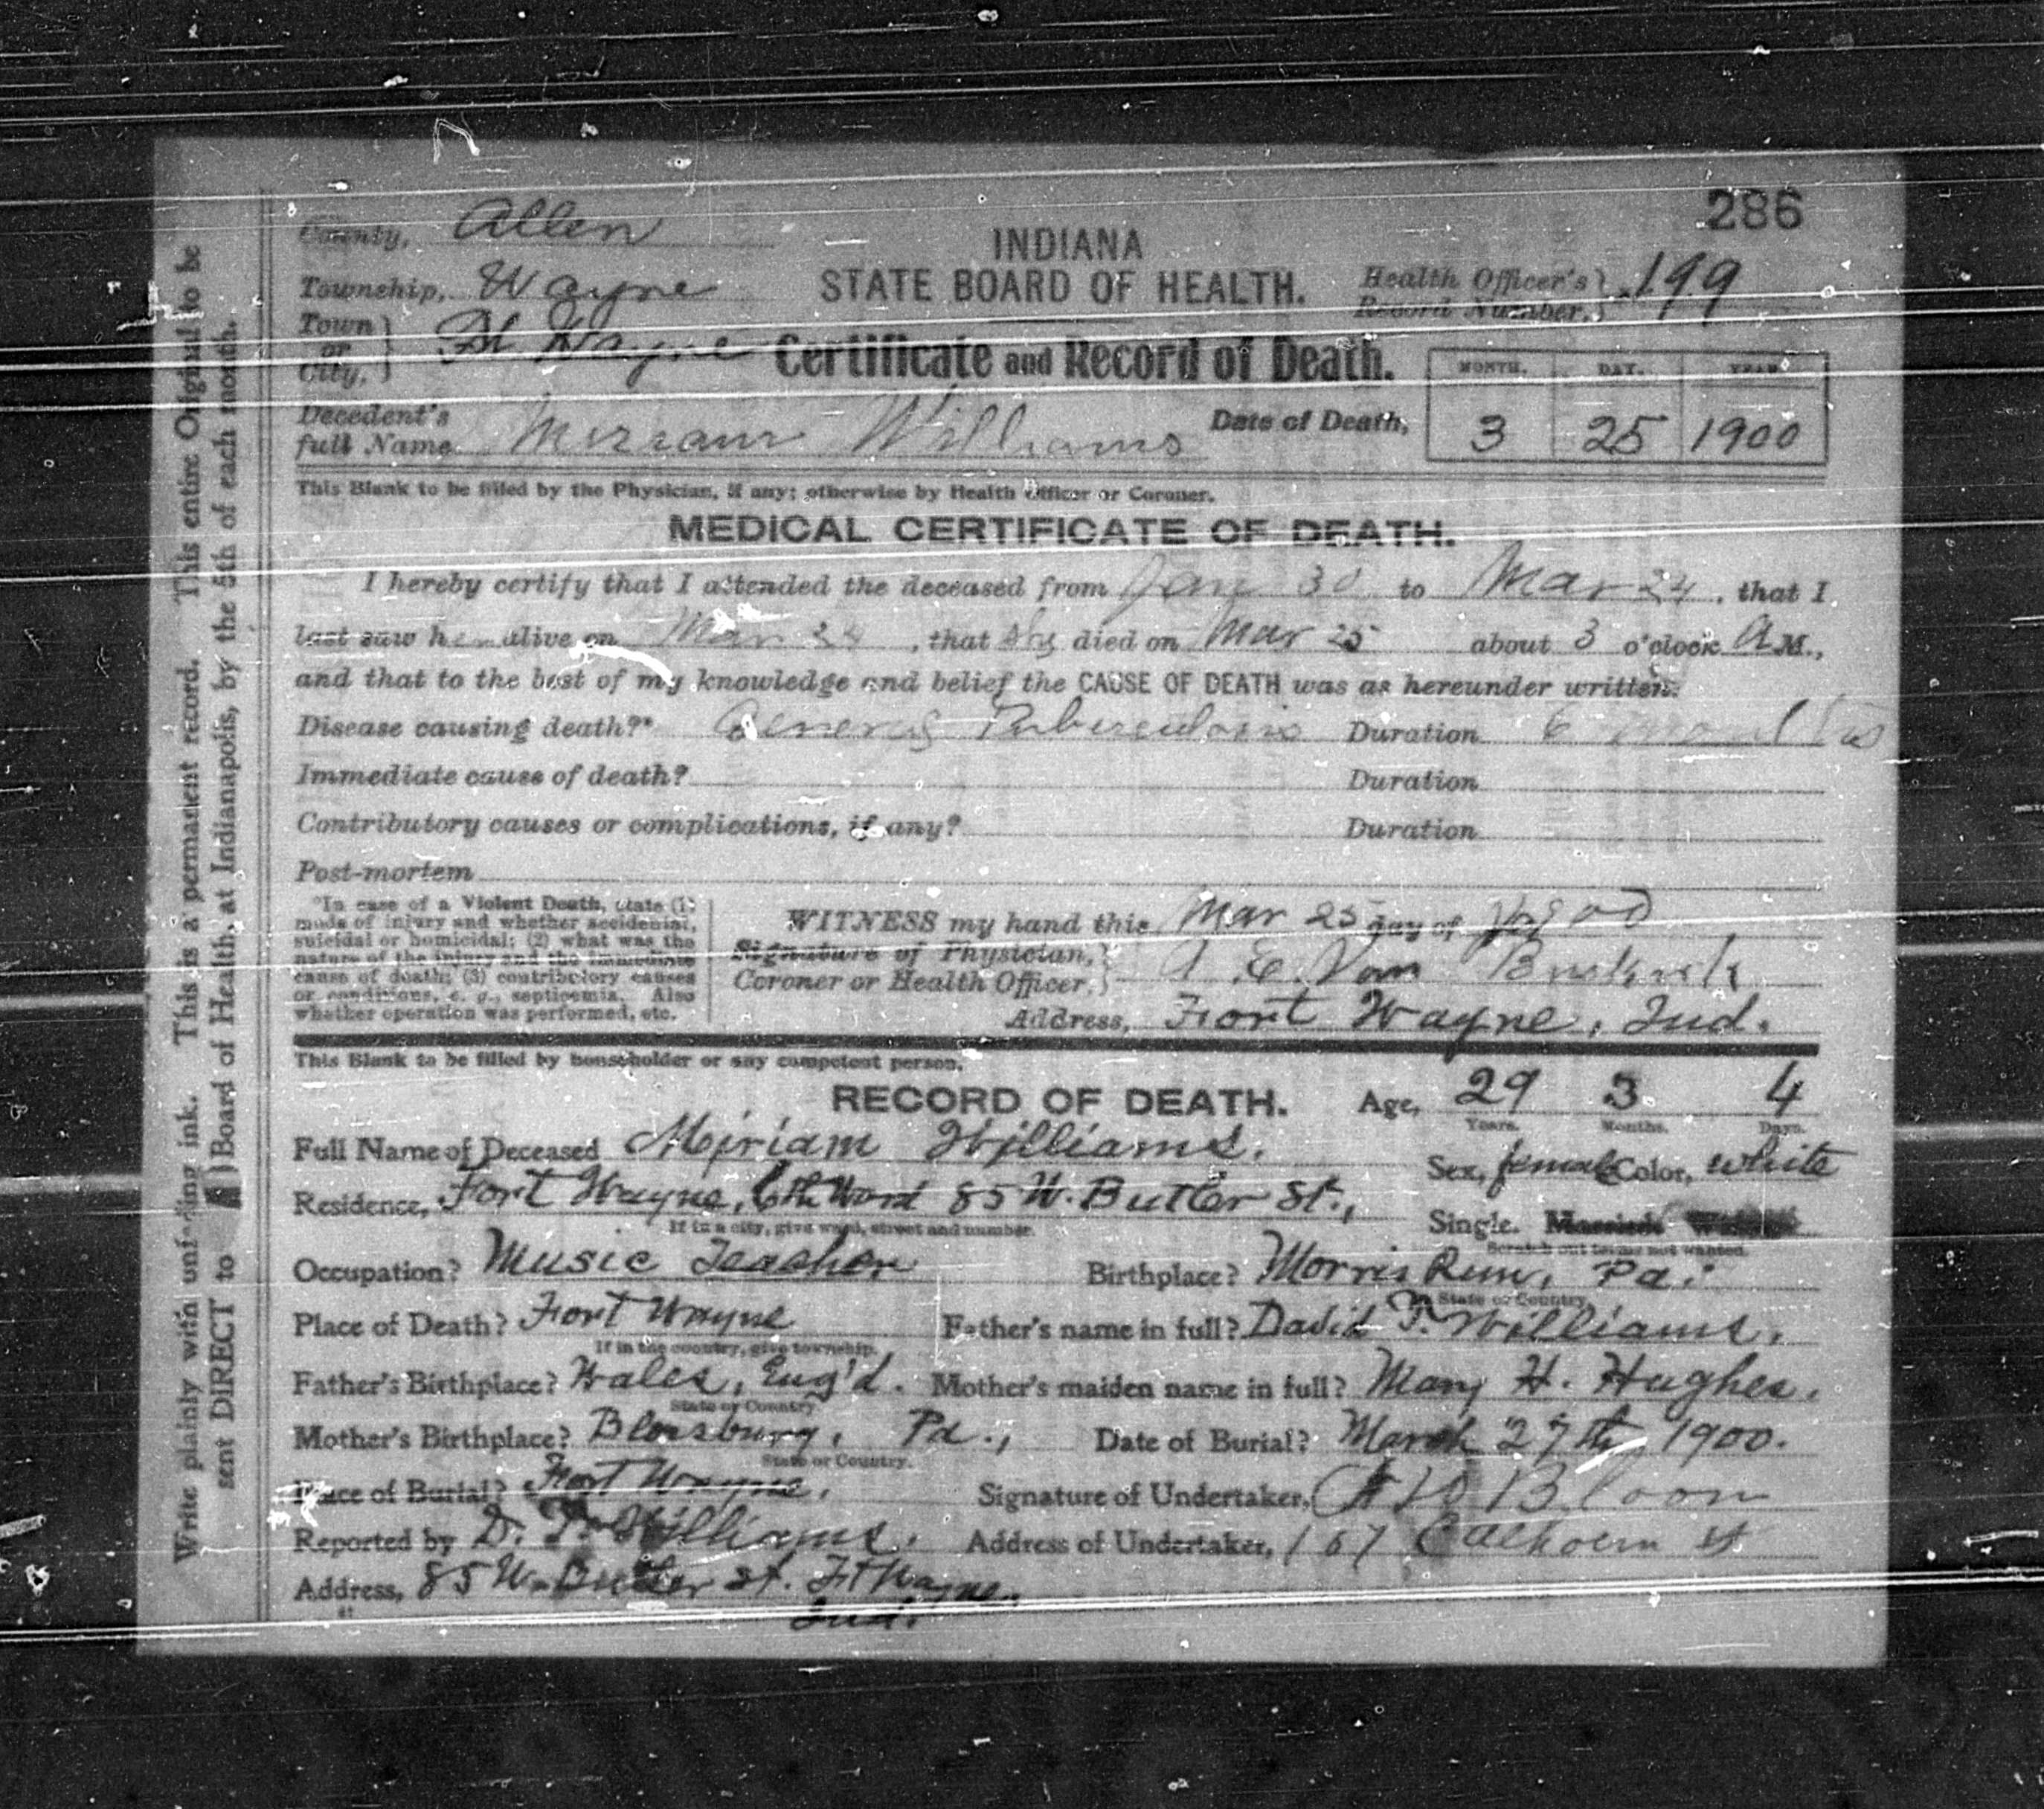 286
County, Allen
INDIANA
Township, Wayne
STATE BOARD OF HEALTH.
Health Officer's Record Number, 199
Town or City, Ft Wayne
Certificate and Record of Death.
MONTH. DAY. YEAR
Decedent's full Name Mirriam Williams
Date of Death, 3 25 1900
This Blank to be filled by the Physician, if any; otherwise by Health Officer or Coroner.
MEDICAL CERTIFICATE OF DEATH.
I hereby certify that I attended the deceased from Jan 30 to Mar 24, that I
last saw her alive on Mar 24, that she died on Mar 25 about 3 o'clock A M.,
and that to the best of my knowledge and belief the CAUSE OF DEATH was as hereunder written:
Disease causing death?* General Tuberculosis Duration 6 months
Immediate cause of death? Duration
Contributory causes or complications, if any? Duration
Post-mortem
*In case of a Violent Death, state (1)
mode of injury and whether accidental,
suicidal or homicidal; (2) what was the
nature of the injury and the immediate
cause of death; (3) contributory causes
or conditions, e. g., septicemia. Also
whether operation was performed, etc.
WITNESS my hand this Mar 25 day of 1900
Signature of Physician, Coroner or Health Officer, A. E. Van Buskirk
Address, Fort Wayne, Ind.
This Blank to be filled by householder or any competent person.
RECORD OF DEATH. Age, 29 3 4
Years. Months. Days.
Full Name of Deceased Miriam Williams.
Sex, female Color, white
Residence, Fort Wayne, 6th Ward 85 W. Butler St.,
If in a city, give ward, street and number.
Single. Married.
Scratch out terms not wanted.
Occupation? Music Teacher Birthplace? Morris Run, Pa.
State or Country
Place of Death? Fort Wayne Father's name in full? David T. Williams.
If in the country, give township.
Father's Birthplace? Wales, Eng'd. Mother's maiden name in full? Mary H. Hughes.
State or Country
Mother's Birthplace? Blossburg, Pa., Date of Burial? March 27th, 1900.
State or Country.
Place of Burial? Fort Wayne. Signature of Undertaker, Bloom
Reported by D. T. Williams. Address of Undertaker, 167 Calhoun St
Address, 85 W. Butler St. Ft Wayne,
Ind.
Write plainly with unfading ink. This is a permanent record. This entire Original to be
sent DIRECT to Board of Health, at Indianapolis, by the 5th of each month.